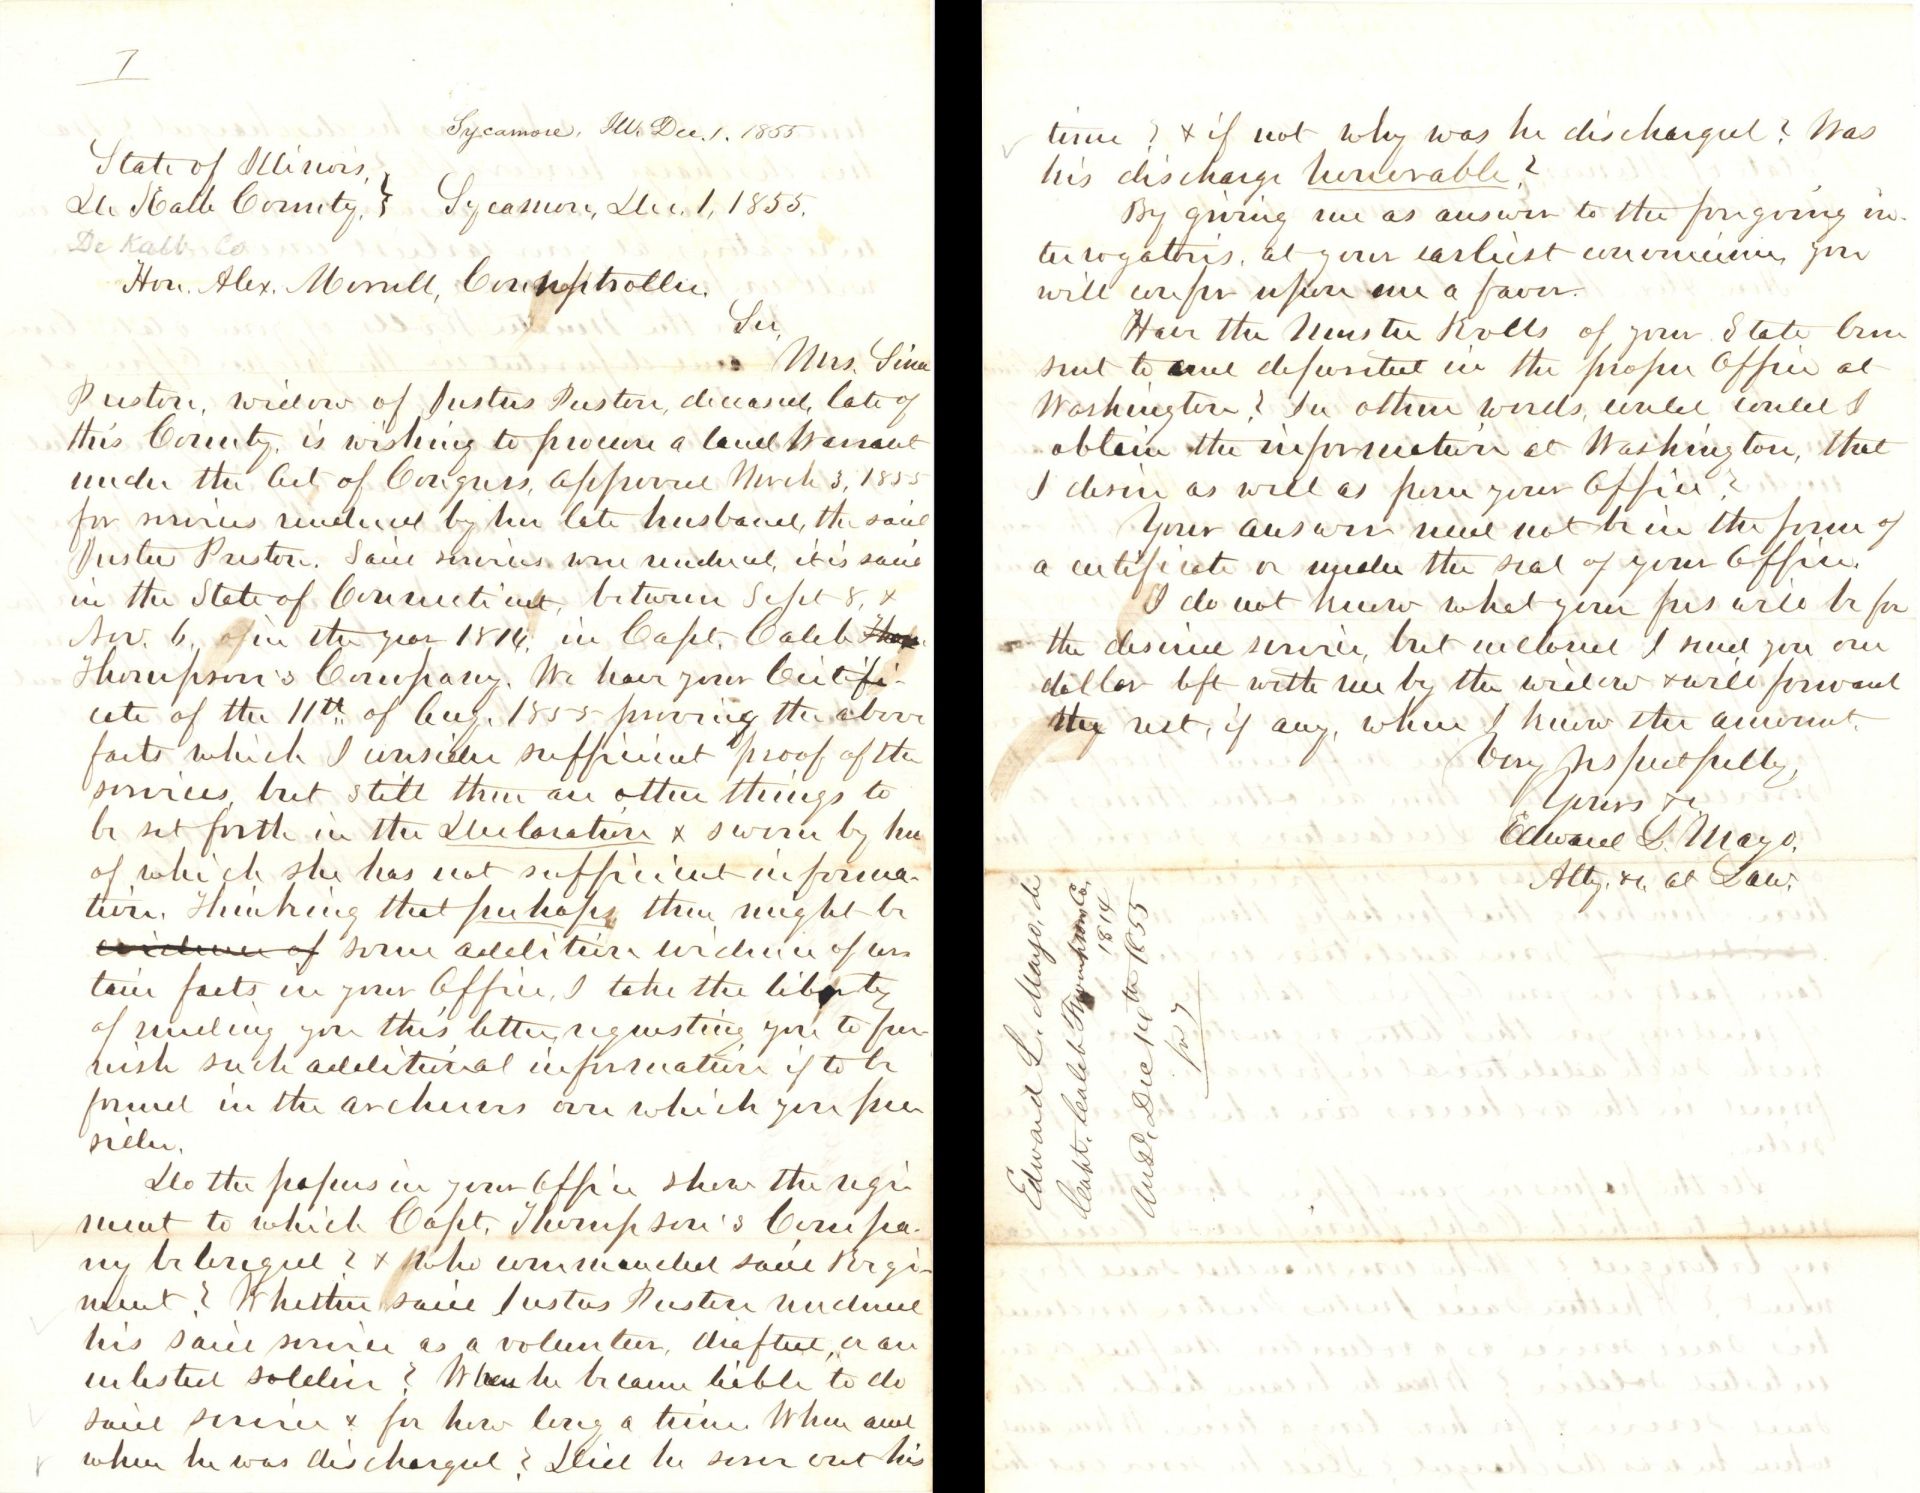 7
Sycamore, Ill. Dec. 1. 1855
State of Illinois, }
De Kalb County, } Sycamore, Dec. 1, 1855.
De Kalb Co
Hon. Alex. Merrill, Comptroller.
Sir,
Mrs. Sina
Preston, widow of Justus Preston, deceased, late of
this County, is wishing to procure a land Warrant
under the Act of Congress, approved March 3, 1855
for services rendered by her late husband, the said
Justus Preston. Said services were rendered, it is said
in the State of Connecticut, between Sept 8, &
Nov. 6, in the year 1814, in Capt. Caleb
Thompson's Company. We have your Certifi-
cate of the 11th. of Aug. 1855 proving the above
facts which I consider sufficient proof of the
services, but still there are other things to
be set forth in the Declaration & sworn by her
of which she has not sufficient informa-
tion. Thinking that perhaps there might be
evidence of some addition evidence of cer
tain facts in your Office, I take the liberty
of sending you this letter, requesting you to fur-
nish such additional information if to be
found in the archives over which you pre
side.
Do the papers in your Office show the regi
ment to which Capt. Thompson's Compa-
ny belonged? & who commanded said Regi-
ment? Whether said Justus Preston rendered
his said service as a volunteer, drafted, or an
enlisted soldier? When he became lieble to do
said service & for how long a time. When and
where he was discharged? Did he serve out his
time? & if not why was he discharged? Was
his discharge honorable?
By giving me as answer to the forgoing in-
terogatoris, at your earliest convenience, you
will confer upon me a favor.
Have the Muster Rolls of your State been
sent to and deposited in the proper Office at
Washington? In other words, could could I
obtain the information at Washington, that
I desire as well as from your Office?
Your answer need not be in the form of
a certificate or under the seal of your Office.
I do not know what your fees will be for
the desired service, but enclosed I send you one
dollar left with me by the widow & will forward
the rest, if any, when I know the amount.
Very respectfully,
Yours &c
Edward L. Mayo.
Atty. &c. at Law.
Edward L. Mayo,
Capt. Caleb Thompson Co.
1814
Ansd. Dec 14th 1855
7